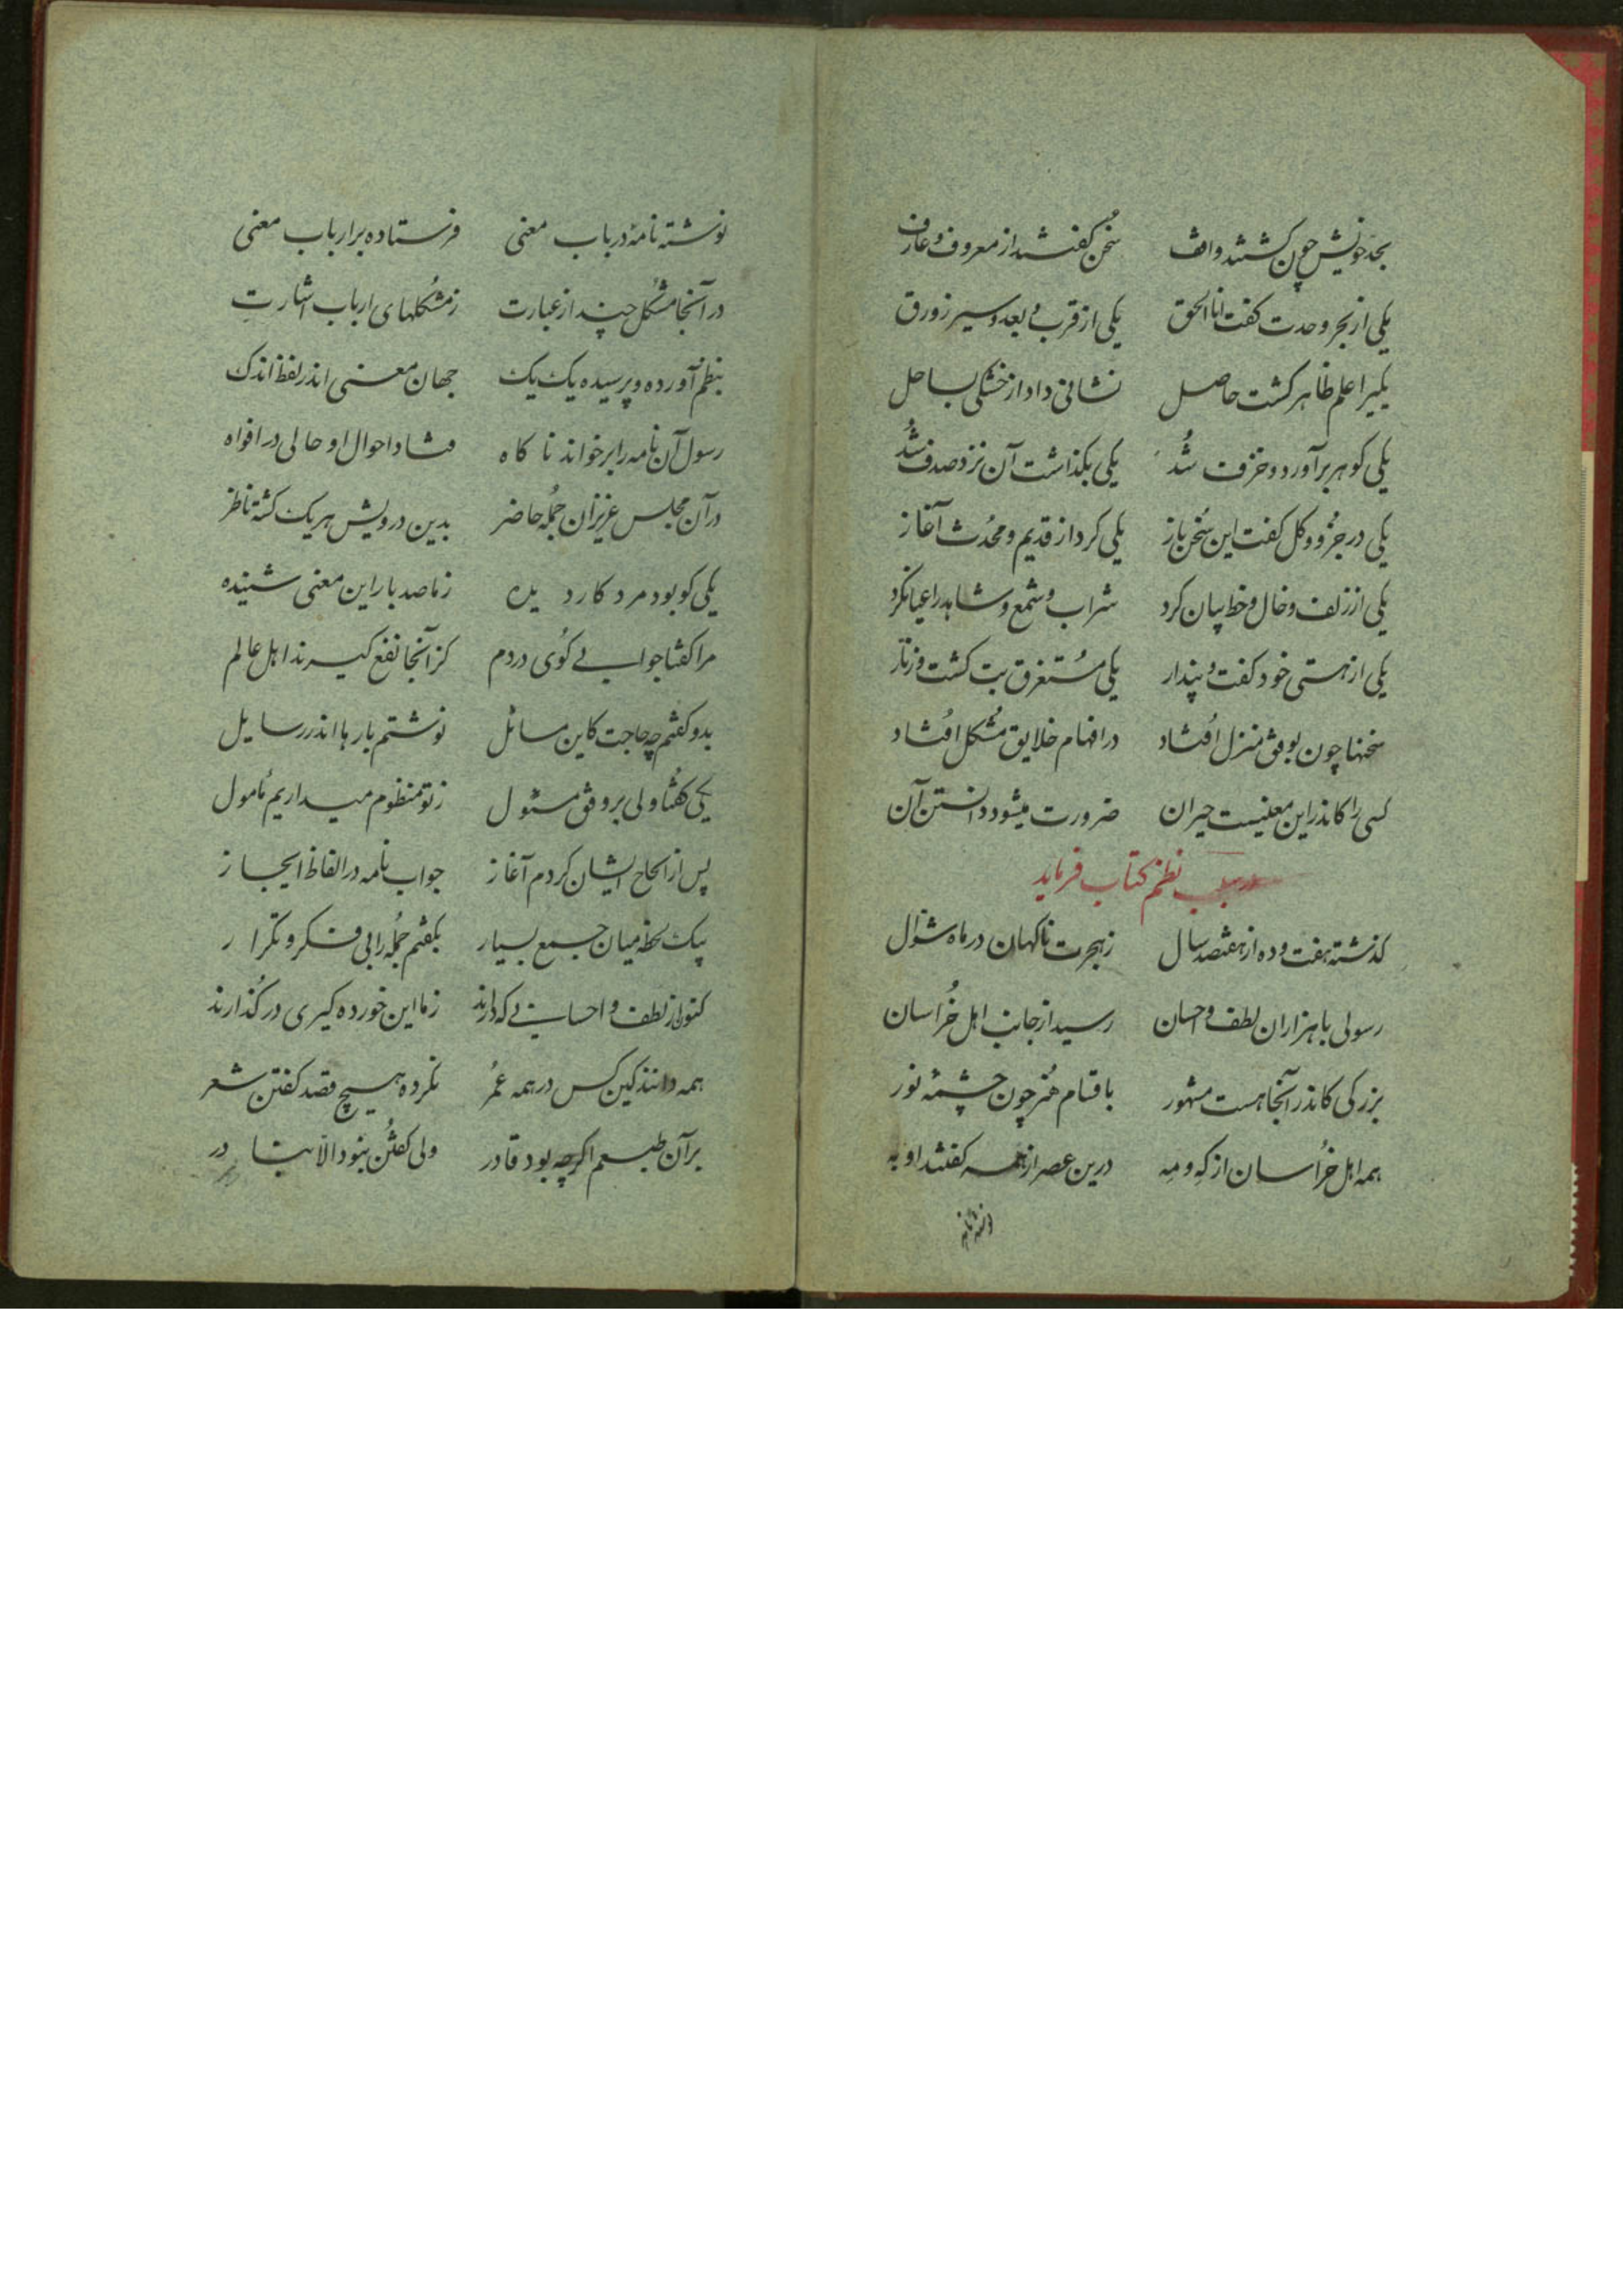 بحد خویش چون کشتند واقف سخن کفتند از معروف و عارف
یکی از بحر وحدت کفت انا الحق یکی از قرب و بعد و سیر زورق
یکیرا علم ظاهر کشت حاصل نشانی داد از خشکی بساحل
یکی کوهر برآورد و خزف شد یکی بکذاشت آن نزد صدف شد
یکی در جزو و کل کفت این سخن باز یکی کرد از قدیم و محدث آغاز
یکی از زلف و خال و خط بیان کرد شراب و شمع و شاهد را عیان کرد
یکی از هستی خود کفت و پندار یکی مستغرق بت کشت و زنار
سخنها چون بوفق منزل افتاد در افهام خلایق مشکل افتاد
کسی را کاندر این معنیست حیران ضرورت میشود دانستن آن
در سبب نظم کتاب فرماید
کذشته هفت و ده از هفتصد سال ز هجرت ناکهان در ماه شوال
رسولی با هزاران لطف و احسان رسید از جانب اهل خراسان
بزرکی کاندر آنجا هست مشهور باقسام هنر چون چشمهٔ نور
همه اهل خراسان از که و مه درین عصر از همه کفتند او به
نوشته نامه
نوشته نامهٔ در باب معنی فرستاده بر ارباب معنی
در آنجا مشکل چند از عبارت ز مشکلهای ارباب اشارت
بنظم آورده و پرسیده یک یک جهان معنی اندر لفظ اندک
رسول آن نامه را برخواند ناکاه فتاد احوال او حالی در افواه
در آن مجلس عزیزان جمله حاضر بدین درویش هر یک کشته ناظر
یکی کو بود مرد کار دیده ز ما صد بار این معنی شنیده
مرا کفتا جوابی کوی در دم کز آنجا نفع کیرند اهل عالم
بدو کفتم چه حاجت کاین مسائل نوشتم بارها اندر رسایل
یکی کفتا ولی بر وفق مسئول ز تو منظوم میداریم مامول
پس از الحاح ایشان کردم آغاز جواب نامه در الفاظ ایجاز
بیک لحظه میان جمع بسیار بکفتم جمله را بی فکر و تکرار
کنون از لطف و احسانی که دارند ز ما این خورده کیری در کذارند
همه دانند کین کس در همه عمر نکرده هیچ قصد کفتن شعر
بر آن طبعم اکرچه بود قادر ولی کفتن نبود الا بنادر